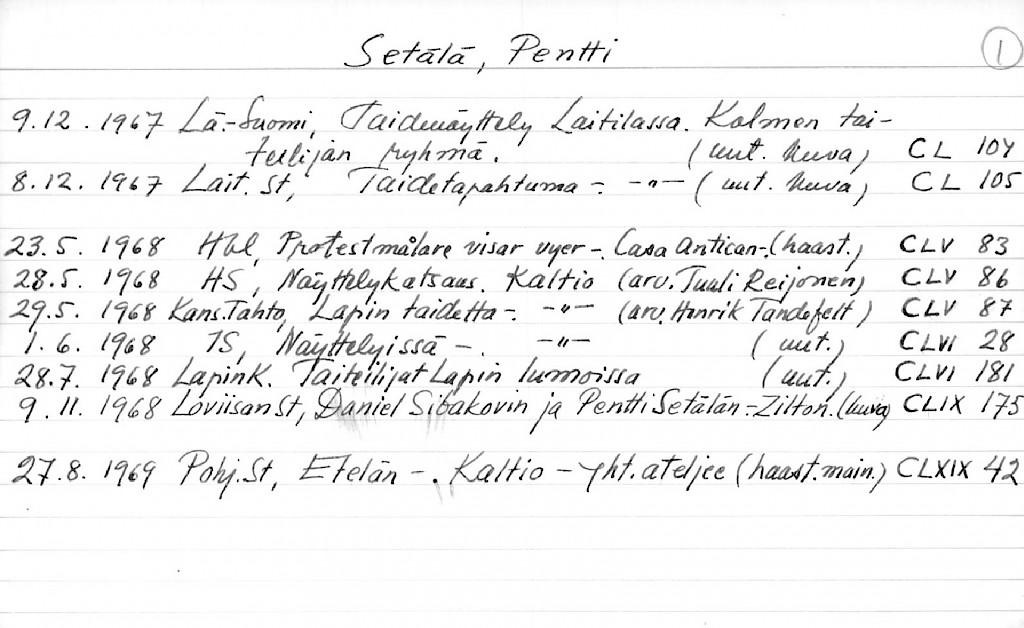 Setälä, Pentti 1
9.12.1967 Lä.-Suomi, Taidenäyttely Laitilassa. Kolmen tai-
teilijan ryhmä. (uut. kuva) CL 104
8.12.1967 Lait. St, Taidetapahtuma -. -"- (uut. kuva) CL 105
23.5.1968 Hbl, Protestmålare visar vyer -. Casa Antican -. (haast.) CLV 83
28.5.1968 HS, Näyttelykatsaus. Kaltio (arv. Tuuli Reijonen) CLV 86
29.5.1968 Kans.Tahto, Lapin taidetta -. -"- (arv. Henrik Tandefelt) CLV 87
1.6.1968 IS, Näyttelyissä -. -"- (uut.) CLVI 28
28.7.1968 LapinK. Taiteilijat Lapin lumoissa (uut.) CLVI 181
9.11.1968 LoviisanSt, Daniel Sibakovin ja Pentti Setälän -. Zilton. (kuva) CLIX 175
27.8.1969 Pohj.St, Etelän -. Kaltio - yht. ateljee (haast. main.) CLXIX 42